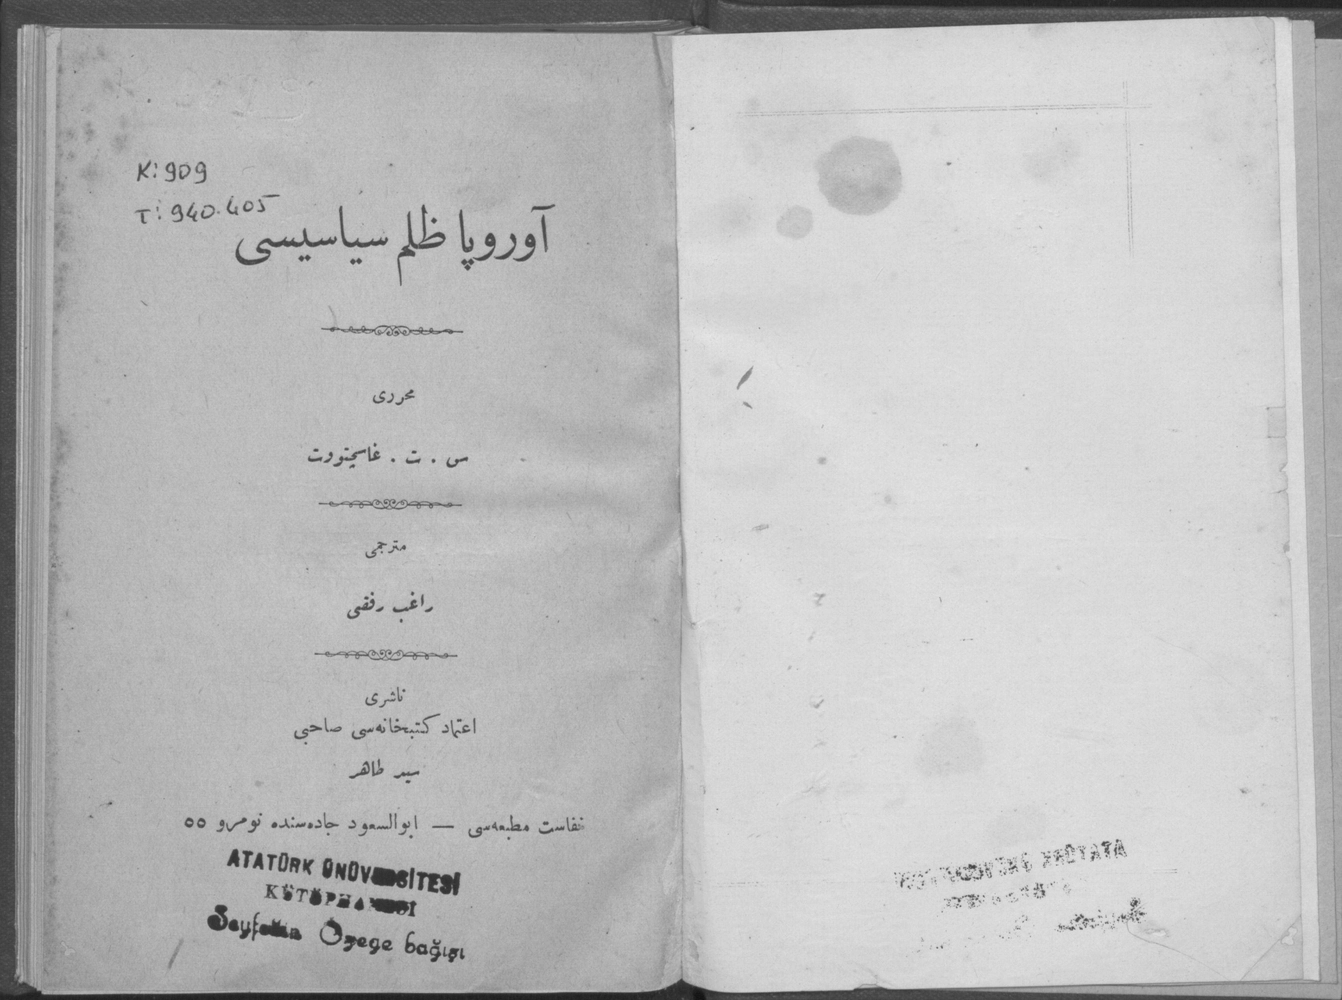 K: 909
T: 940.405
آوروپا ظلم سیاسیسی
محرری
س . ت . غاسچتوورت
مترجمی
راغب رفقی
ناشری
اعتماد کتبخانه‌سی صاحبی
سید طاهر
نفاست مطبعه‌سی — ابوالسعود جاده‌سنده نومرو ٥٥
ATATÜRK ÜNÜVERSİTESİ
KÜTÜPHANESİ
Seyfettin Özege bağışı